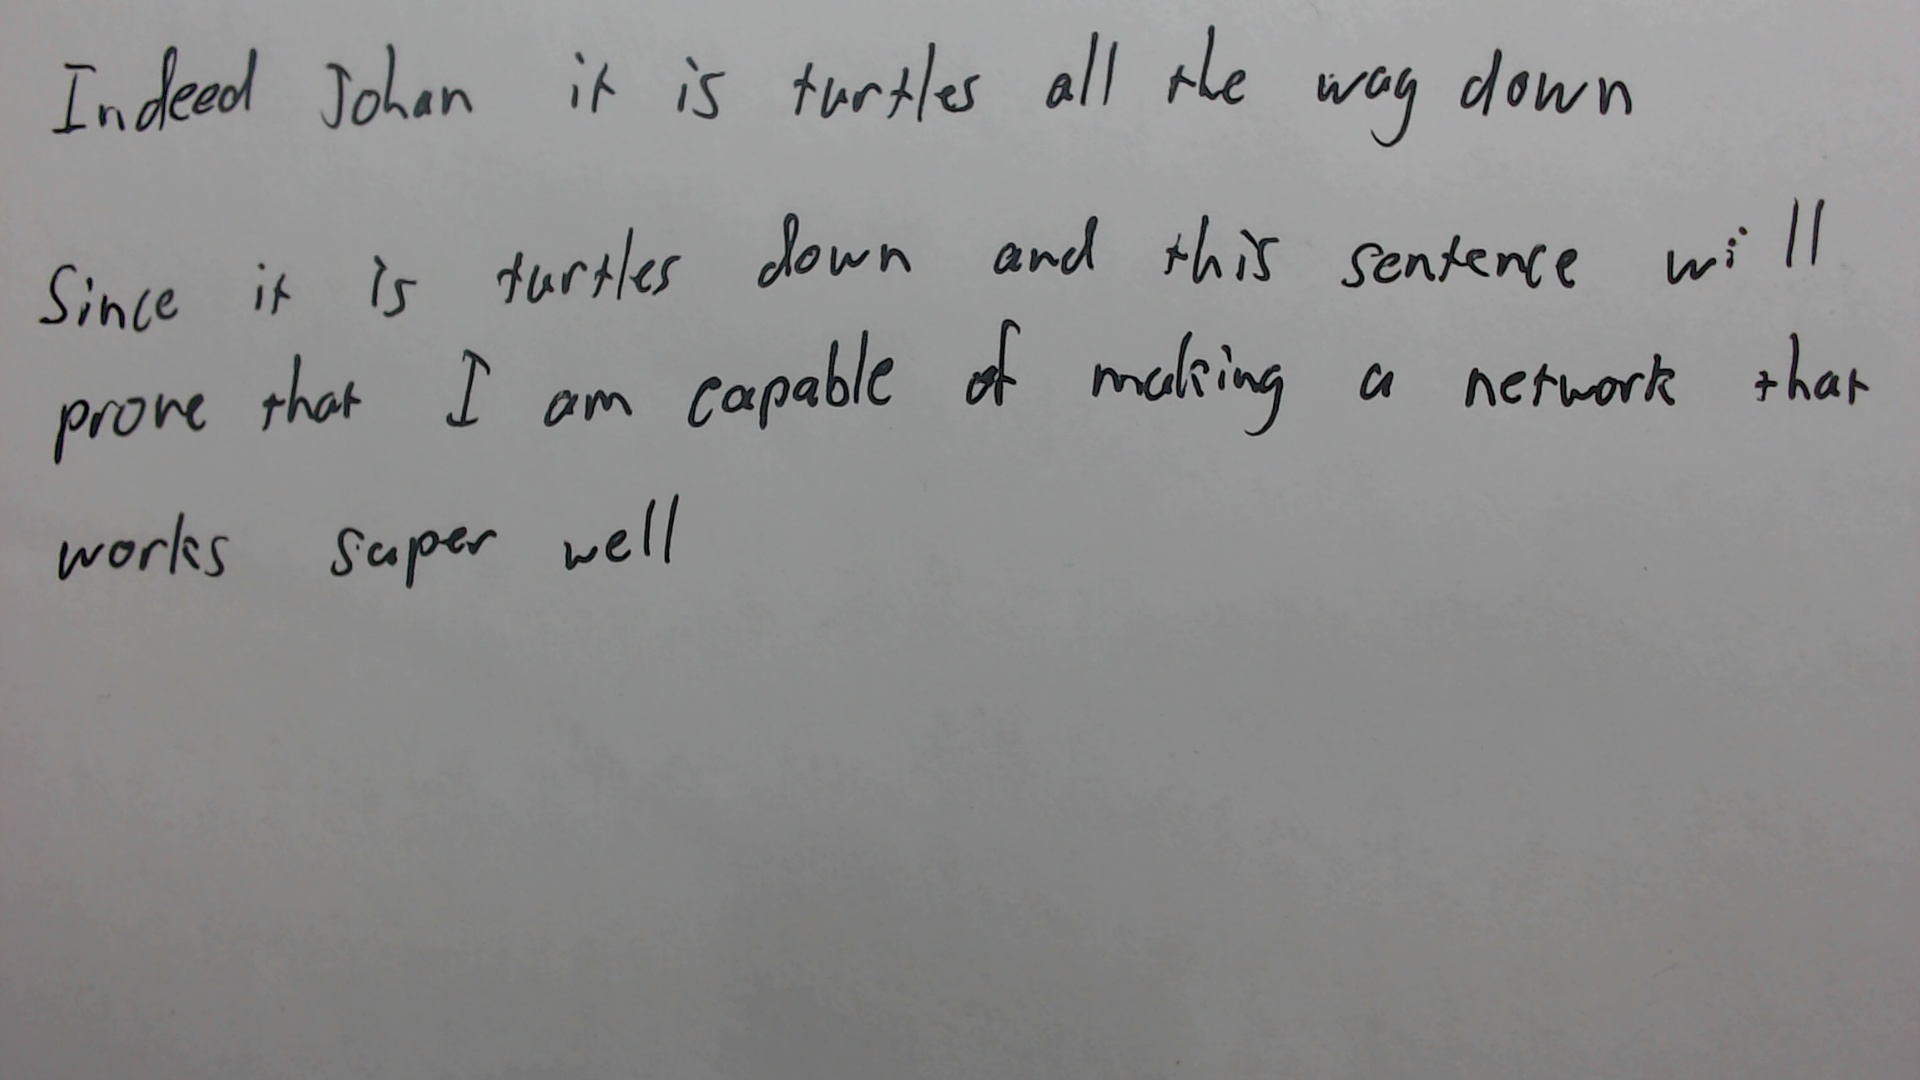 Indeed Johan it is turtles all the way down
Since it is turtles down and this sentence will
prove that I am capable of making a network that
works super well